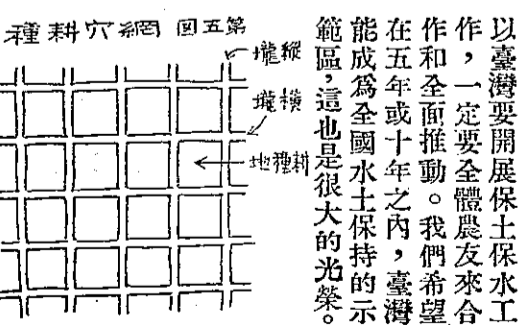 以臺灣要開展保土保水工
作，一定要全體農友來合
作和全面推動。我們希望
在五年或十年之內，臺灣
能成爲全國水土保持的示
範區，這也是很大的光榮。
第五圖 網穴耕種
縱壠
橫壠
耕種地